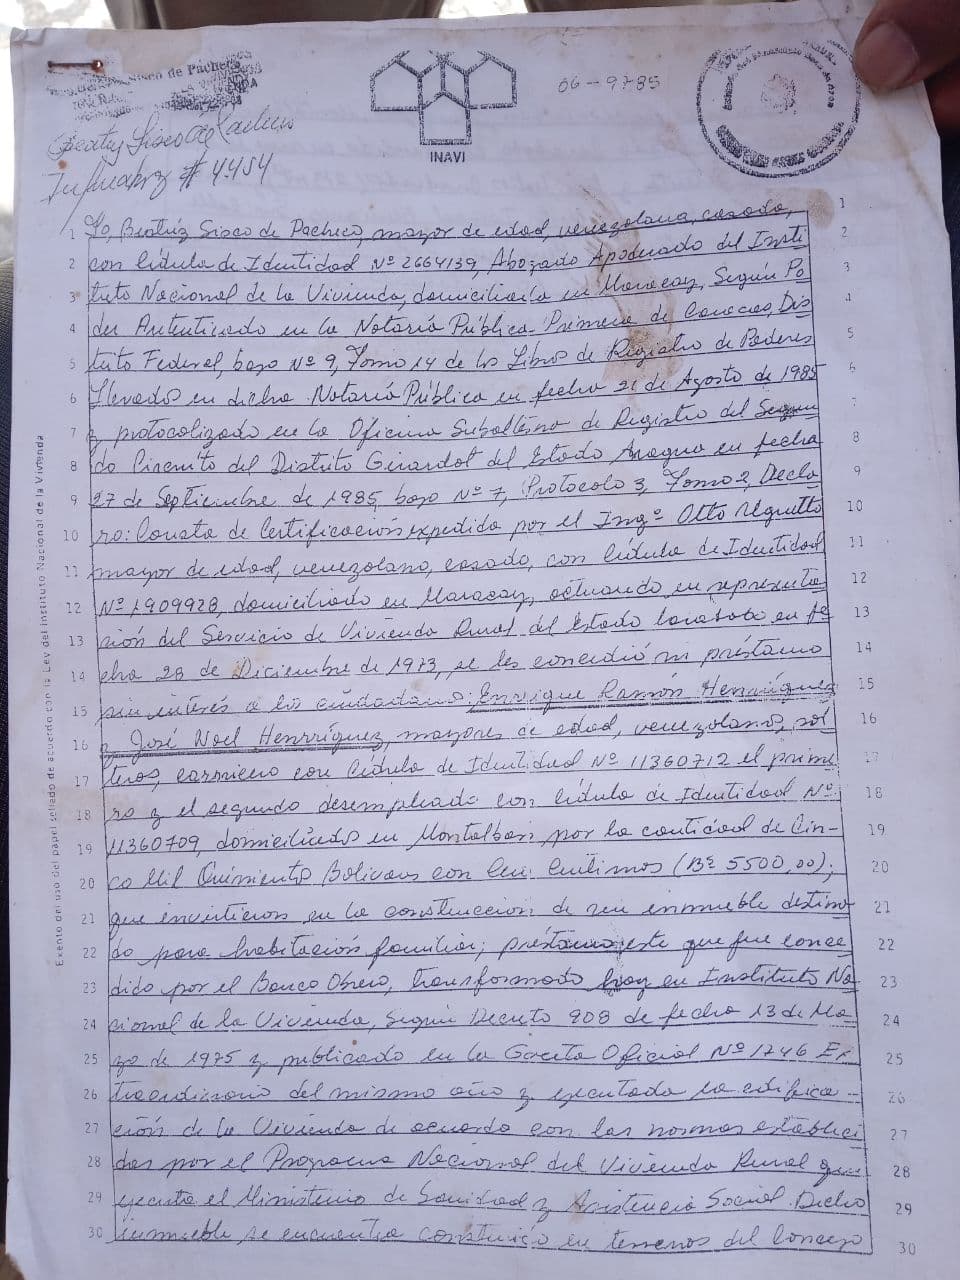 Sisco de Pacheco
06-9785
INAVI
Beatriz Sisco de Pacheco
Inpreabog # 4454
Exento del uso del papel sellado de acuerdo con la Ley del Instituto Nacional de la Vivienda
1 Yo, Beatriz Sisco de Pacheco, mayor de edad, venezolana, casada, 1
2 con Cédula de Identidad Nº 2664139, Abogado Apoderado del Insti 2
3 tuto Nacional de la Vivienda, domiciliada en Maracay, Según Po 3
4 der Autenticado en la Notaría Pública Primera de Caracas, Dis 4
5 trito Federal, bajo Nº 9, Tomo 14 de los Libros de Registro de Poderes 5
6 llevados en dicha Notaría Pública en fecha 21 de Agosto de 1985 6
7 y protocolizado en la Oficina Subalterna de Registro del Segun 7
8 do Circuito del Distrito Girardot del Estado Aragua en fecha 8
9 27 de Septiembre de 1985, bajo Nº 7, Protocolo 3, Tomo 2, Decla 9
10 ro: Consta de Certificación expedida por el Ingº Otto 10
11 mayor de edad, venezolano, casado, con Cédula de Identidad 11
12 Nº 1909928, domiciliado en Maracay, actuando en representa 12
13 ción del Servicio de Vivienda Rural del Estado Carabobo en fe 13
14 cha 28 de Diciembre de 1973, se les concedió un préstamo 14
15 sin interés a los ciudadanos: Enrique Ramón Henríquez 15
16 y José Noel Henrríquez, mayores de edad, venezolanos, sol 16
17 teros, carnicero con Cédula de Identidad Nº 11360712 el prime 17
18 ro y el segundo desempleado con Cédula de Identidad Nº 18
19 11360709, domiciliados en Montalban por la cantidad de Cin- 19
20 co Mil Quinientos Bolívares con Cero Céntimos (Bº 5500,00); 20
21 que invirtieron en la construcción de un inmueble destina 21
22 do para habitación familiar; préstamo este que fue conce 22
23 dido por el Banco Obrero, transformado hoy en Instituto Na 23
24 cional de la Vivienda, Según Decreto 908 de fecha 13 de Ma 24
25 yo de 1975 y publicado en la Gaceta Oficial Nº 1746 Ex 25
26 traordinario del mismo año y ejecutada la edifica- 26
27 ción de la Vivienda de acuerdo con las normas estableci 27
28 das por el Programa Nacional del Vivienda Rural que 28
29 ejecuta el Ministerio de Sanidad y Asistencia Social. Dicho 29
30 inmueble se encuentra construido en terrenos del Concejo 30